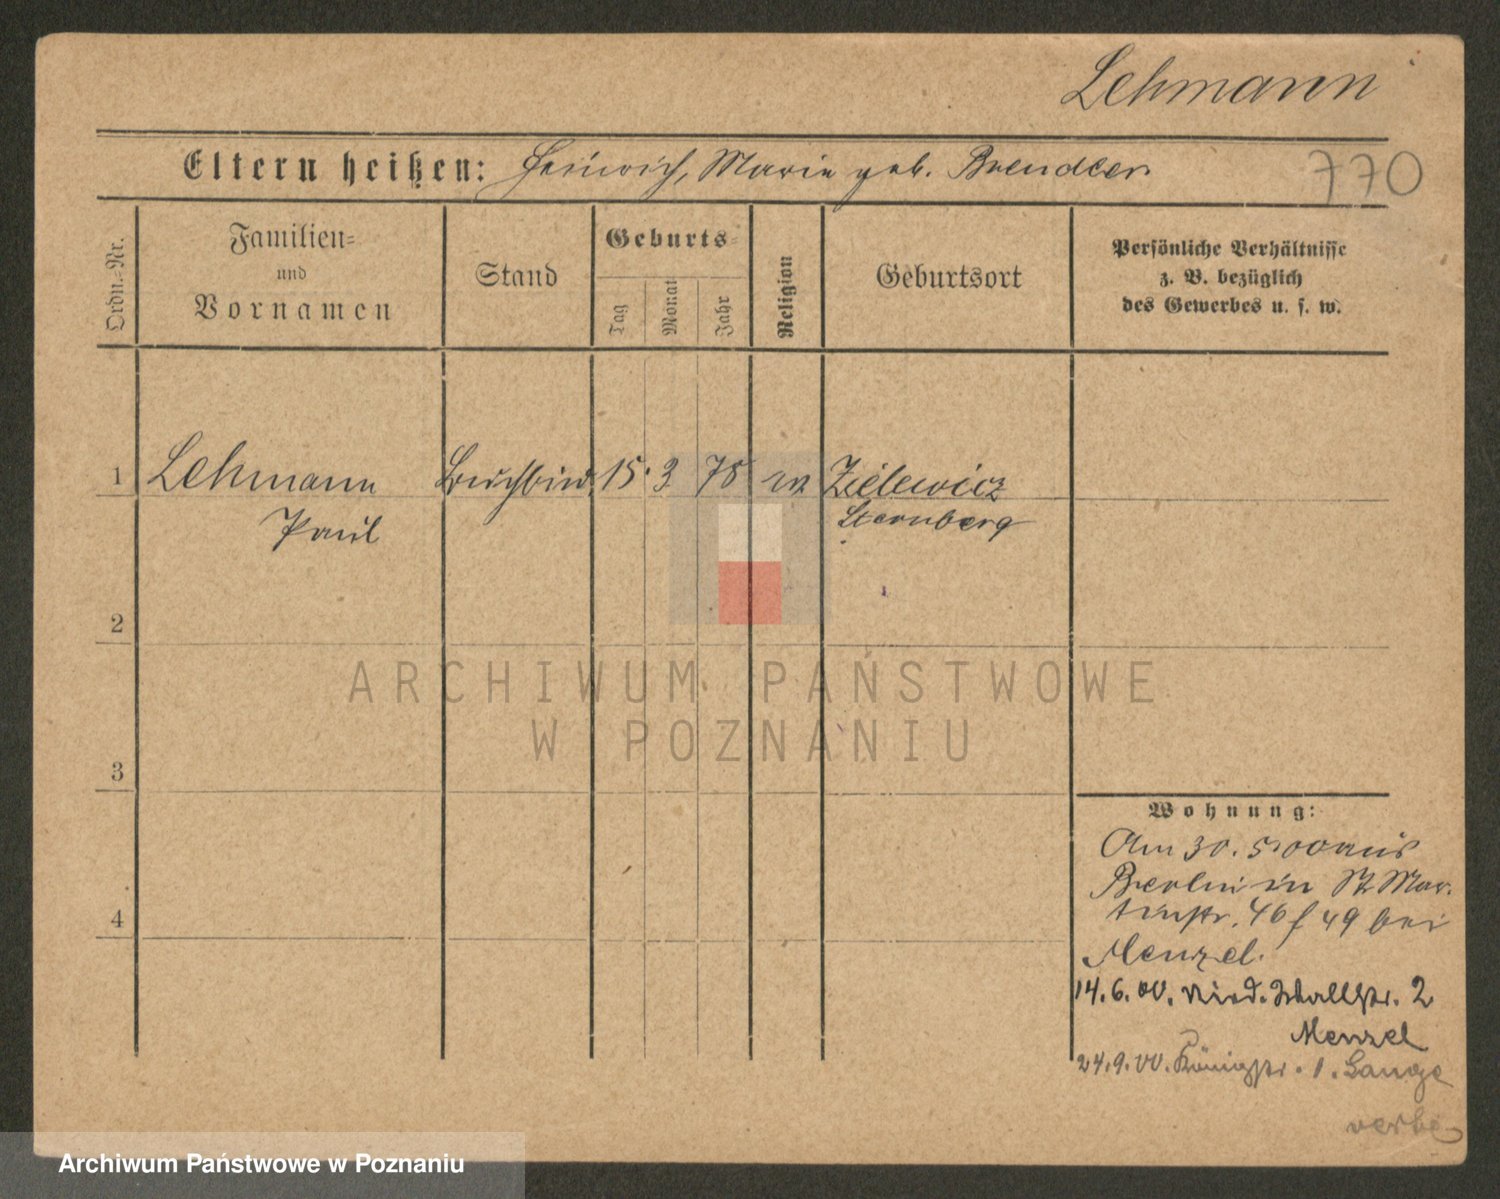 Lehmann
Eltern heißen: Heinrich, Marie geb. Brendler
770
Ordn.=Nr.
Familien=
und
Vornamen
Stand
Geburts=
Tag
Monat
Jahr
Religion
Geburtsort
Persönliche Verhältnisse
z. B. bezüglich
des Gewerbes u. s. w.
1 Lehmann Buchbind. 15. 3 78 Zielewicz
Paul Sternberg
2
3
4
ARCHIWUM PAŃSTWOWE
W POZNANIU
Wohnung:
Am 30. 5 00 aus
Berlin in St Mar-
tinstr. 46/49 bei
Menzel.
14.6.00. Nied. Wallstr. 2
Menzel
24.9.00. Königstr. 1. Lange
Archiwum Państwowe w Poznaniu